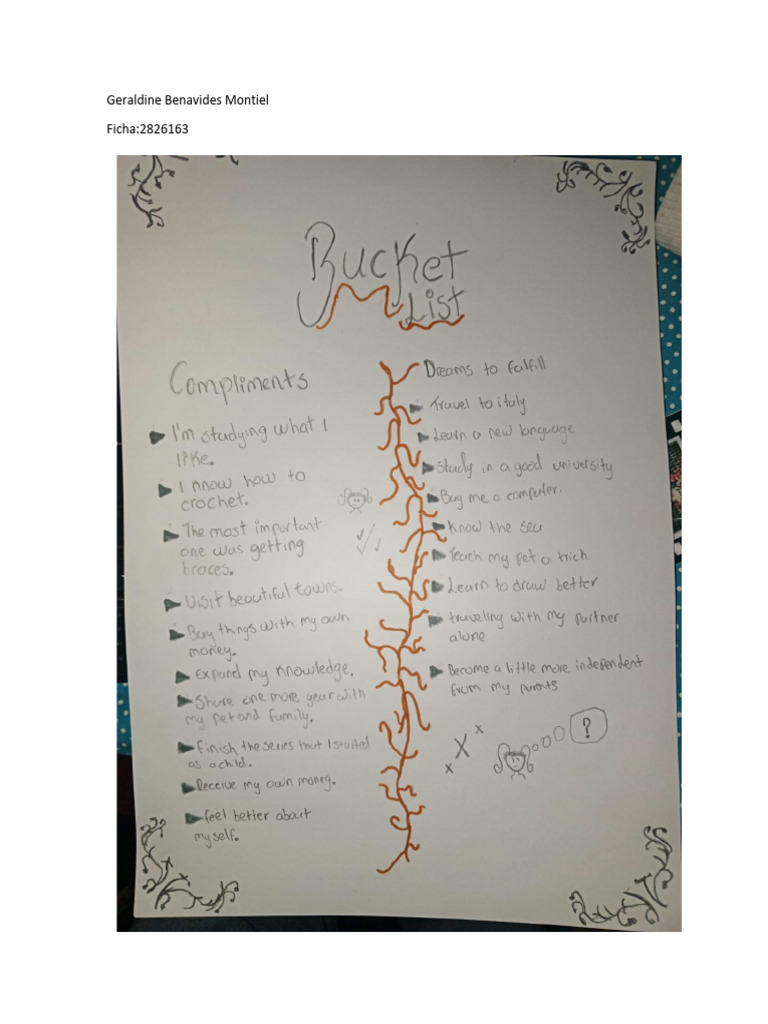 Geraldine Benavides Montiel
Ficha:2826163
Bucket
List
Compliments
I'm studying what I
like.
I know how to
crochet.
The most important
one was getting
braces.
Visit beautiful towns.
Buy things with my own
money.
Expand my knowledge.
Share one more year with
my pet and family.
Finish the series that I started
as a child.
Receive my own money.
feel better about
myself.
Dreams to fulfill
Travel to italy
Learn a new language
Study in a good university
Buy me a computer.
Know the sea
Teach my pet a trich
Learn to draw better
traveling with my partner
alone
Become a little more independent
from my parents
x
X
x
?